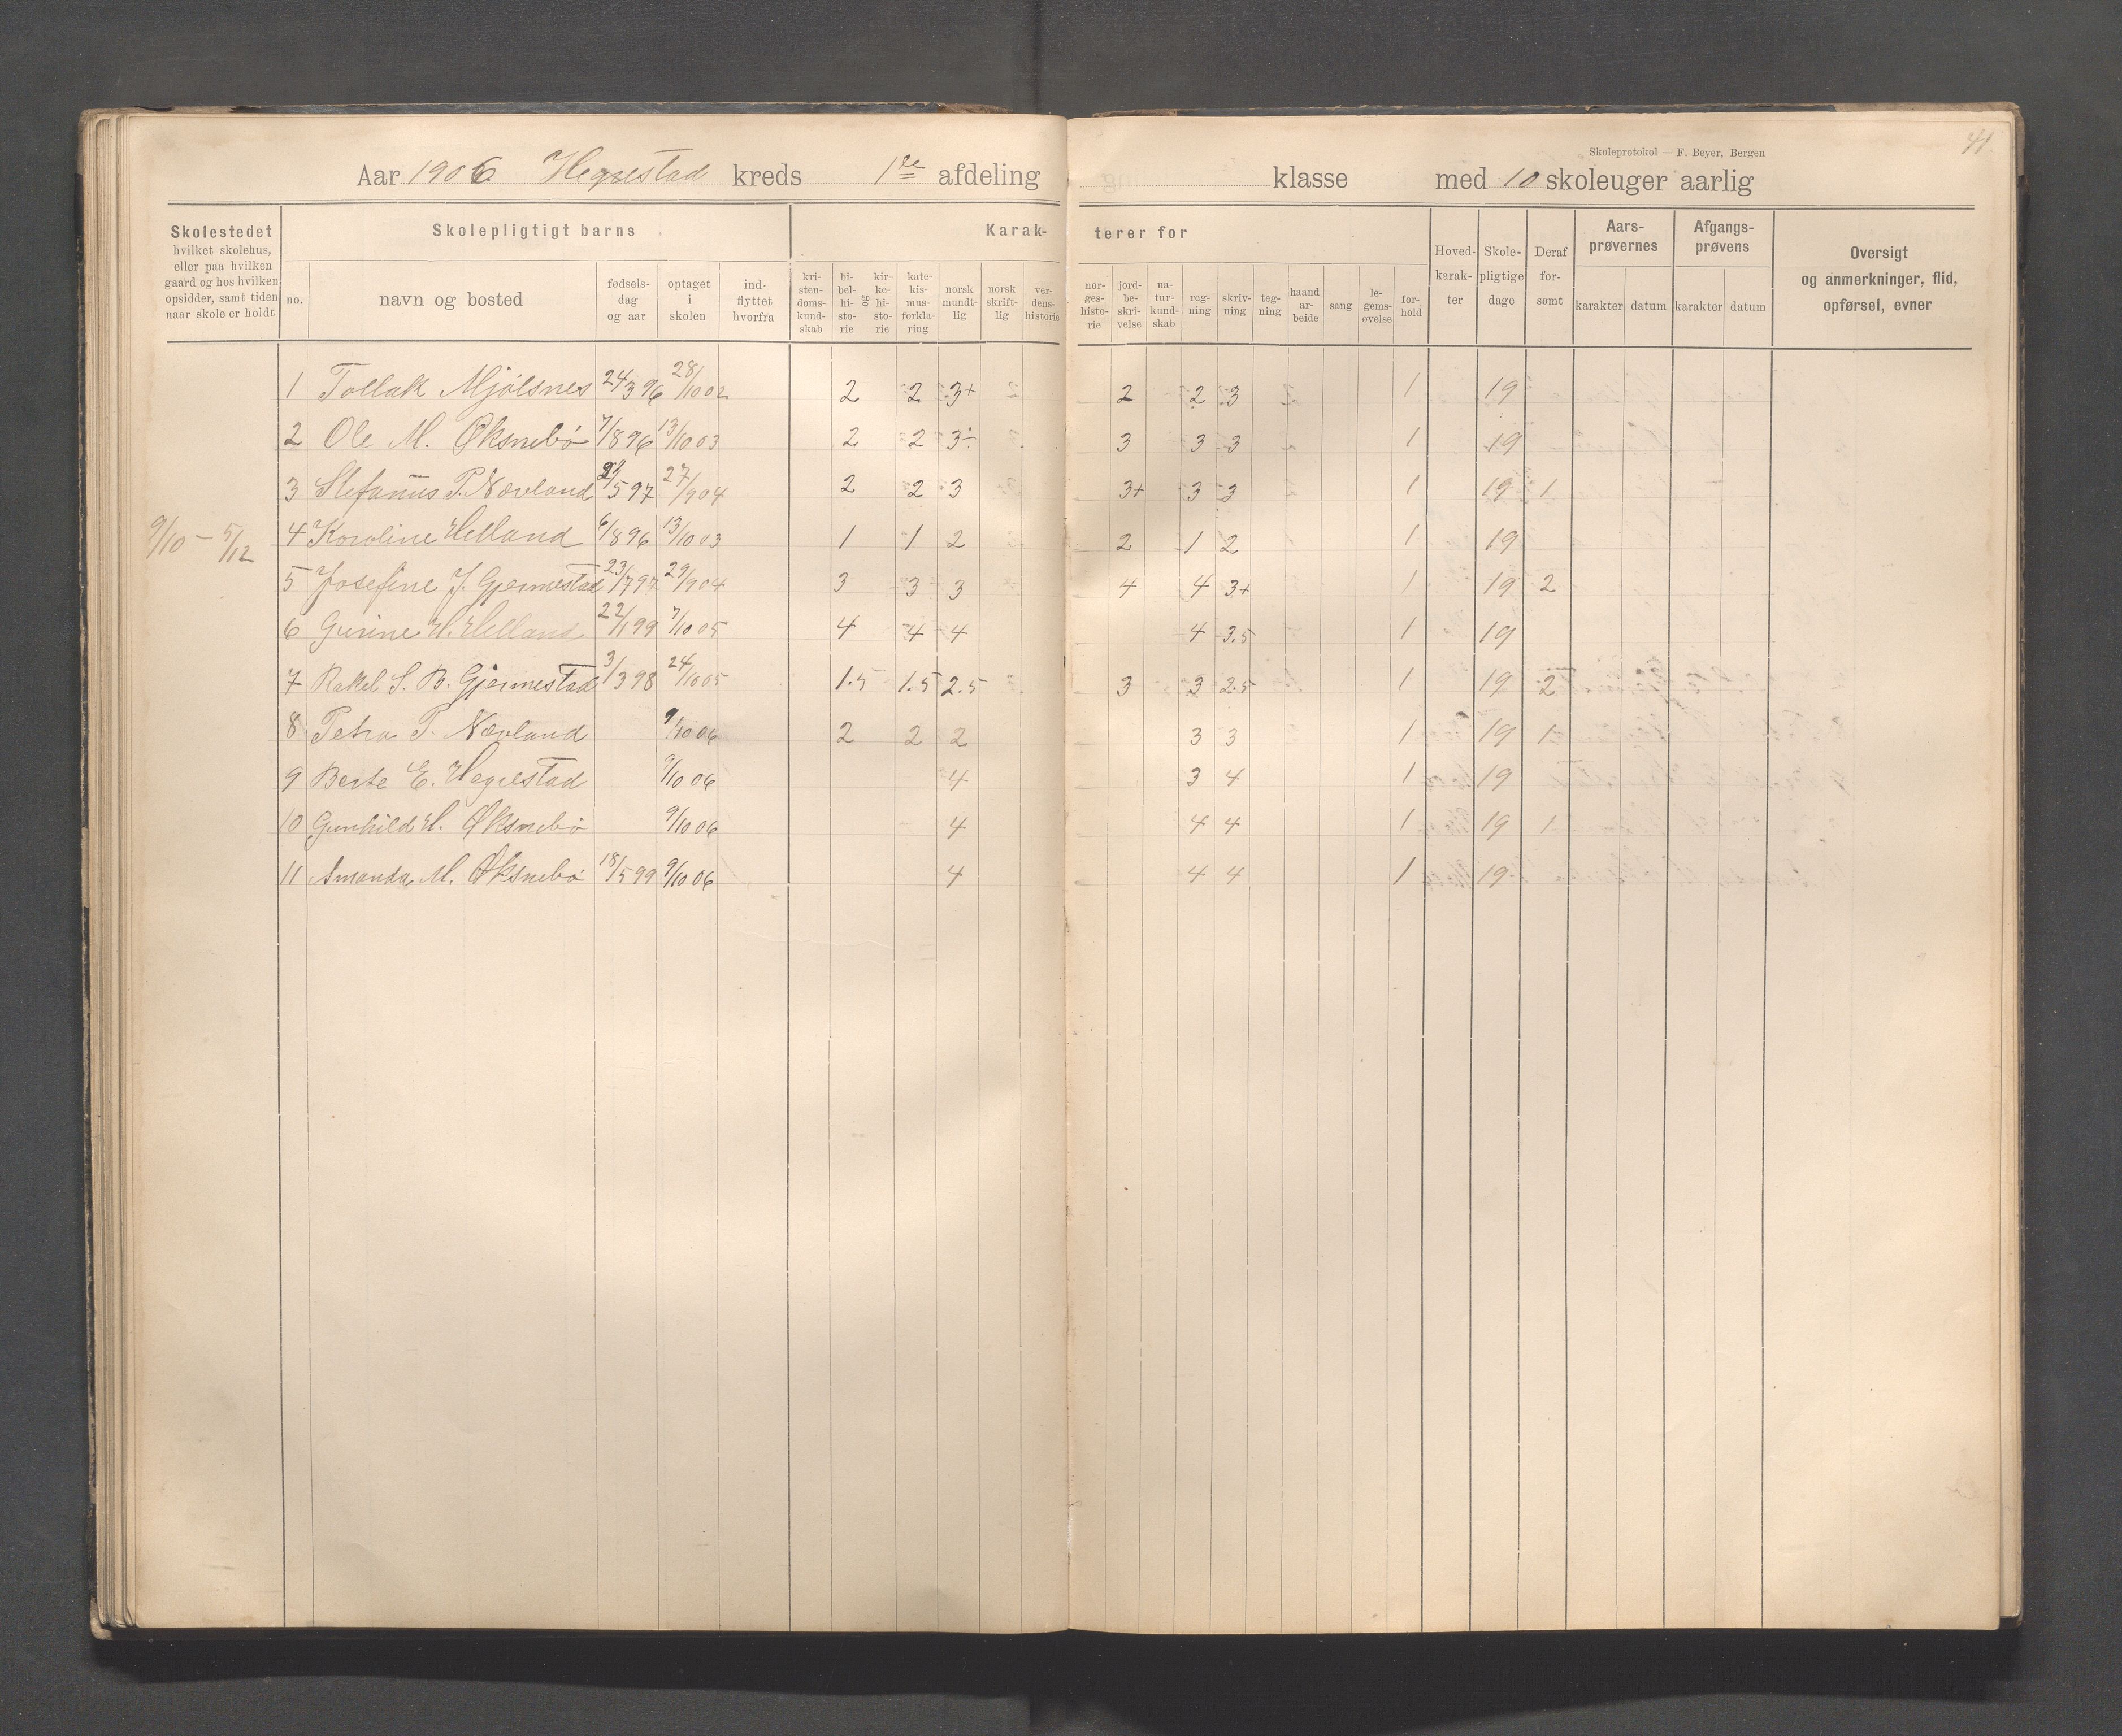 41.
Skoleprotokol — F. Beyer, Bergen
Aar 1906 Hegrestad kreds 1ste afdeling klasse med 10 skoleuger aarlig
Skolestedet hvilket skolehus, eller paa hvilken gaard og hos hvilken opsidder, samt tiden naar skole er holdt
Skolepligtigt barns
no. navn og bosted fødselsdag og aar optaget i skolen indflyttet hvorfra
Karakterer for
kristendomskundskab bibelhistorie og kirkehistorie katekismusforklaring norsk mundtlig norsk skriftlig verdenshistorie norgeshistorie jordbeskrivelse naturkundskab regning skrivning tegning haandarbeide sang legemsøvelse forhold
Hovedkarakter Skolepligtige dage Deraf forsømt
Aarsprøvernes karakter datum
Afgangsprøvens karakter datum
Oversigt og anmerkninger, flid, opførsel, evner
1 Tollak Mjølsnes 24/3 96 28/10 02 2 2 3+ 2 2 3 1 19
2 Ole M. Øksnebø 7/8 96 13/10 03 2 2 3÷ 3 3 3 1 19
3 Stefanus P. Nævland /5 97 27/9 04 2 2 3 3+ 3 3 1 19 1
9/10 — 5/12
4 Karoline Helland 6/8 96 13/10 03 1 1 2 2 1 2 1 19
5 Josefine J. Gjermestad 23/7 97 29/9 04 3 3 3 4 4 3+ 1 19 2
6 Gurine H. Helland 22/1 99 7/10 05 4 4 4 4 3.5 1 19
7 Rakel S. B. Gjermestad 3/3 98 24/10 05 1.5 1.5 2.5 3 3 2.5 1 19 2
8 Petra P. Nævland 9/10 06 2 2 2 3 3 1 19 1
9 Berte E. Hegrestad 9/10 06 4 3 4 1 19
10 Gunhild H. Øksnebø 9/10 06 4 4 4 1 19 1
11 Amanda M. Øksnebø 18/5 99 9/10 06 4 4 4 1 19